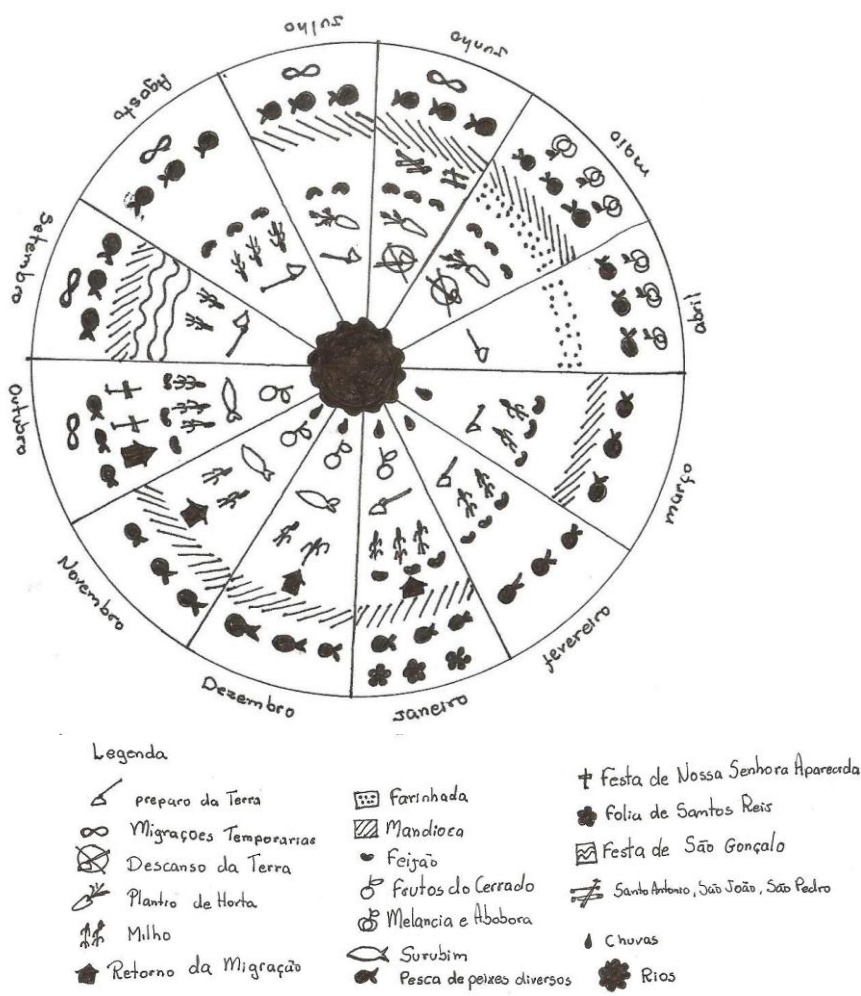 Julho
Junho
Maio
abril
março
fevereiro
Janeiro
Dezembro
Novembro
Outubro
Setembro
Agosto
Legenda
preparo da Terra
Migrações Temporarias
Descanso da Terra
Plantio de Horta
Milho
Retorno da Migração
Farinhada
Mandioca
Feijão
Frutos do Cerrado
Melancia e Abobora
Surubim
Pesca de peixes diversos
Festa de Nossa Senhora Aparecida
Folia de Santos Reis
Festa de São Gonçalo
Santo Antonio, São João, São Pedro
Chuvas
Rios